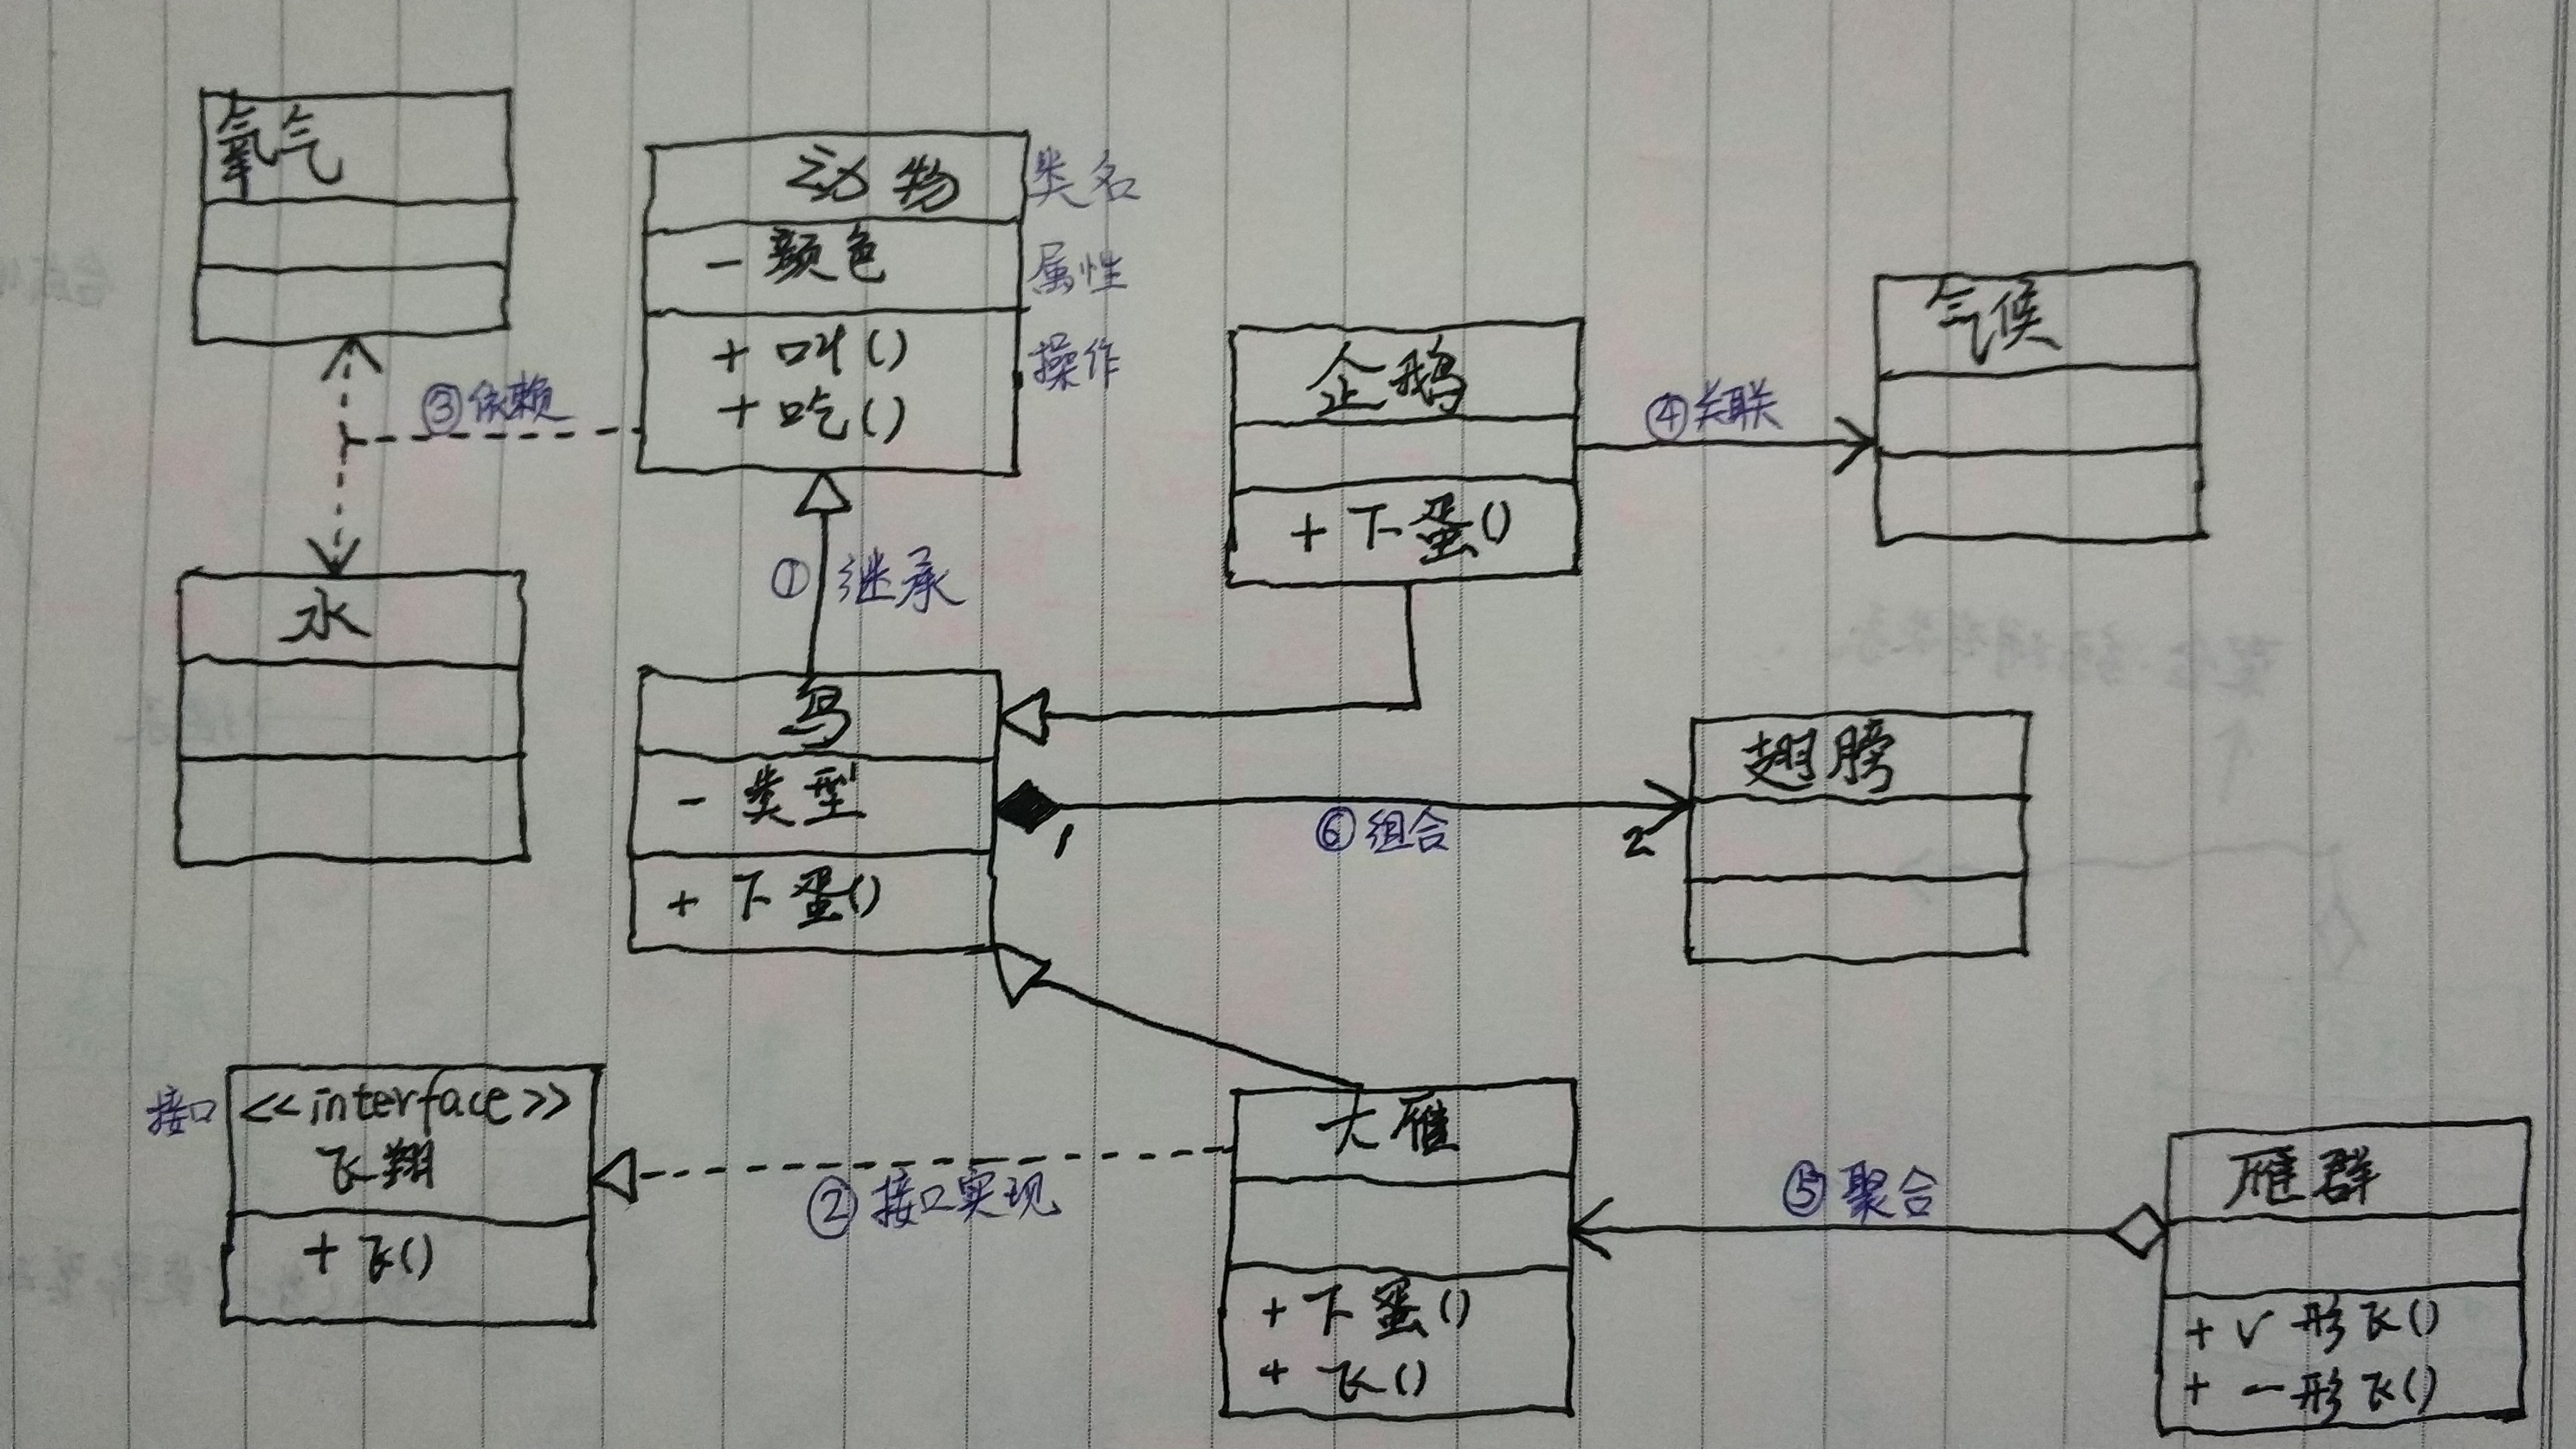 氧气
动物
类名
- 颜色
属性
+ 叫()
操作
+ 吃()
③依赖
企鹅
+ 下蛋()
④关联
气候
水
①继承
鸟
- 类型
+ 下蛋()
1
⑥组合
2
翅膀
接口
<<interface>>
飞翔
+ 飞()
②接口实现
大雁
+ 下蛋()
+ 飞()
⑤聚合
雁群
+ V形飞()
+ 一形飞()